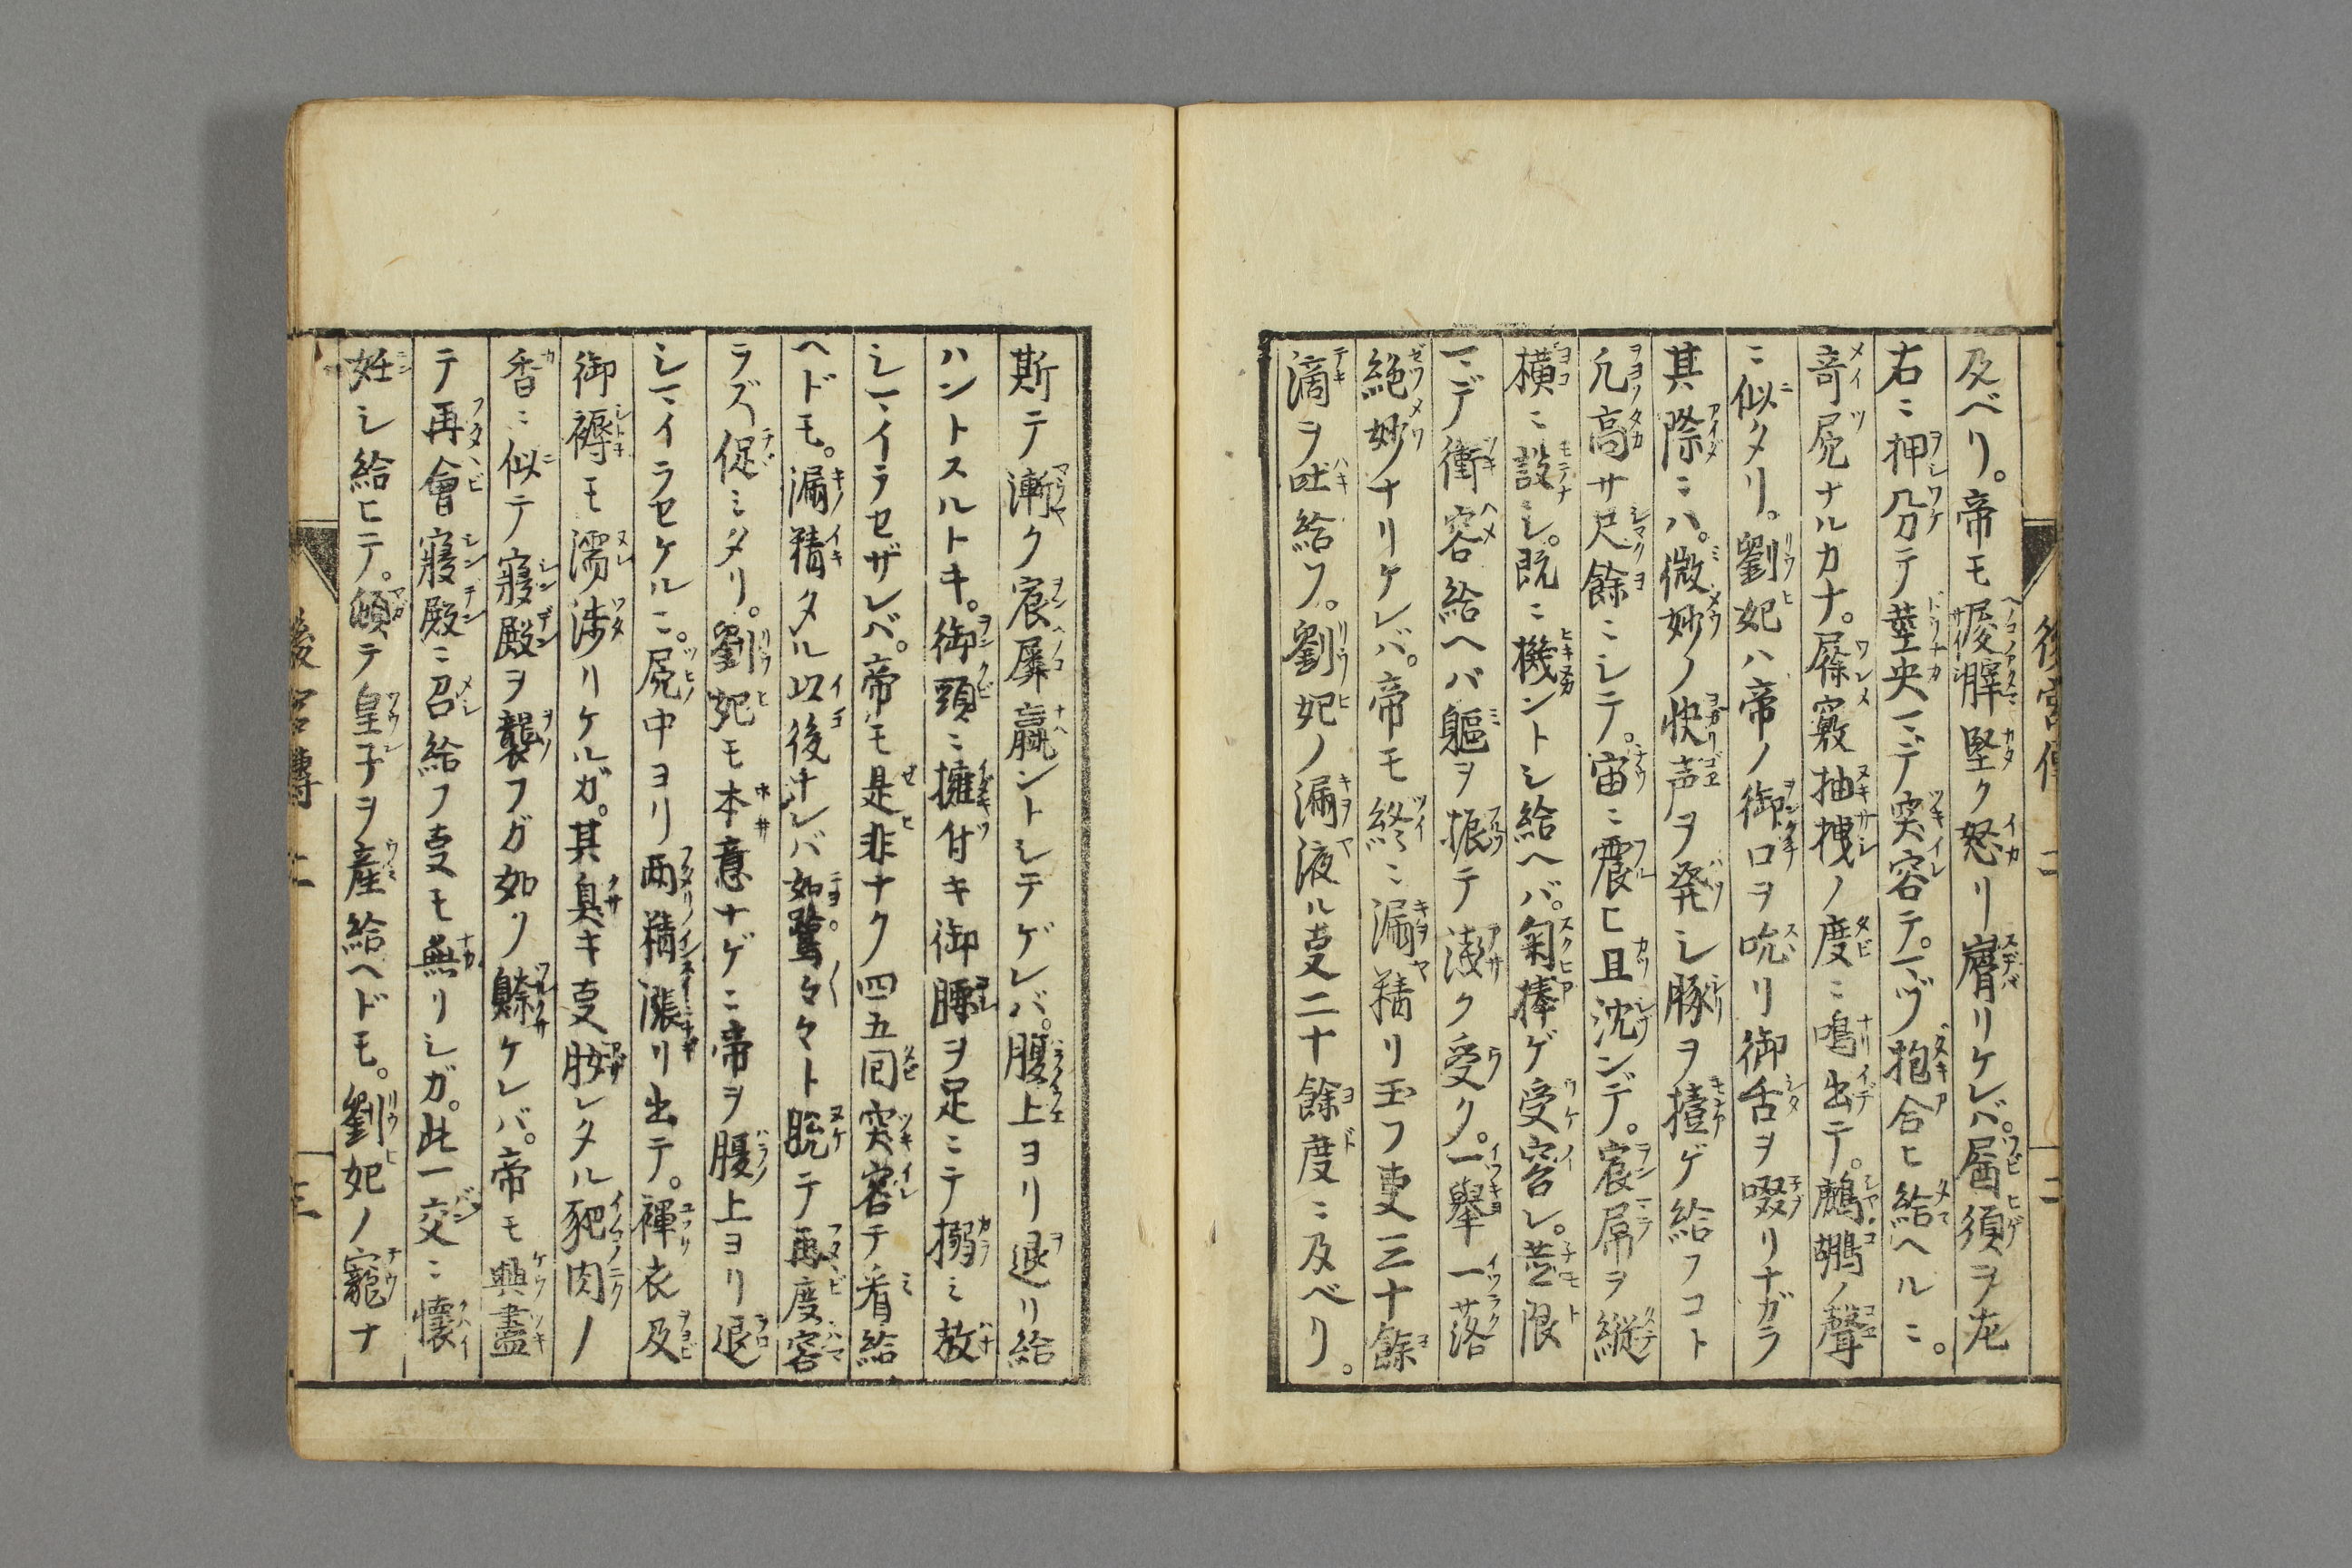 及ベリ。帝モ朘脺堅ク怒リ膺リケレバ。届須ヲ左
右ニ押分テ莖央マデ突容テ。マヅ抱合ヒ給ヘルニ。
竒屍ナルカナ。屧竅抽拽ノ度ニ鳴出テ。鷓鶘ノ聲
ニ似タリ。劉妃ハ帝ノ御口ヲ吮リ御舌ヲ啜リナガラ
其際ニハ。微妙ノ快声ヲ発シ豚ヲ擡ゲ給フコト
凢高サ尺餘ニシテ。宙ニ震ヒ且沈ンデ。宸屌ヲ縦
横ニ設シ。既ニ機ントシ給ヘバ。匊捧ゲ受容レ。莖限
マデ衝容給ヘバ軀ヲ振テ淺ク受ク。一舉一落
絶妙ナリケレバ。帝モ終ニ漏精リ玉フ叓三十餘
滴ヲ吐給フ。劉妃ノ漏液ル叓二十餘度ニ及ベリ。
後宮傳 上 二
斯テ漸ク宸屪羸ントシテゲレバ。腹上ヨリ退リ給
ハントスルトキ。御頸ニ擁付キ御腰ヲ足ニテ搦ミ放
シマイラセザレバ。帝モ是非ナク四五囘突容テ看給
ヘドモ。漏精タル以後ナレバ如鷺々々ト脱テ再度容
ラズ促ミタリ。劉妃モ本意ナゲニ帝ヲ腹上ヨリ退
シマイラセケルニ。屍中ヨリ両精漲リ出テ。褌衣及
御褥モ濡渉リケルガ。其臭キ叓胺レタル豝肉ノ
香ニ似テ寢殿ヲ襲フガ如ク賖ケレバ。帝モ興盡
テ再會寢殿ニ召給フ叓モ無リシガ。此一交ニ懐
妊シ給ヒテ。頠テ皇子ヲ産給ヘドモ。劉妃ノ寵ナ
後宮傳 上 三